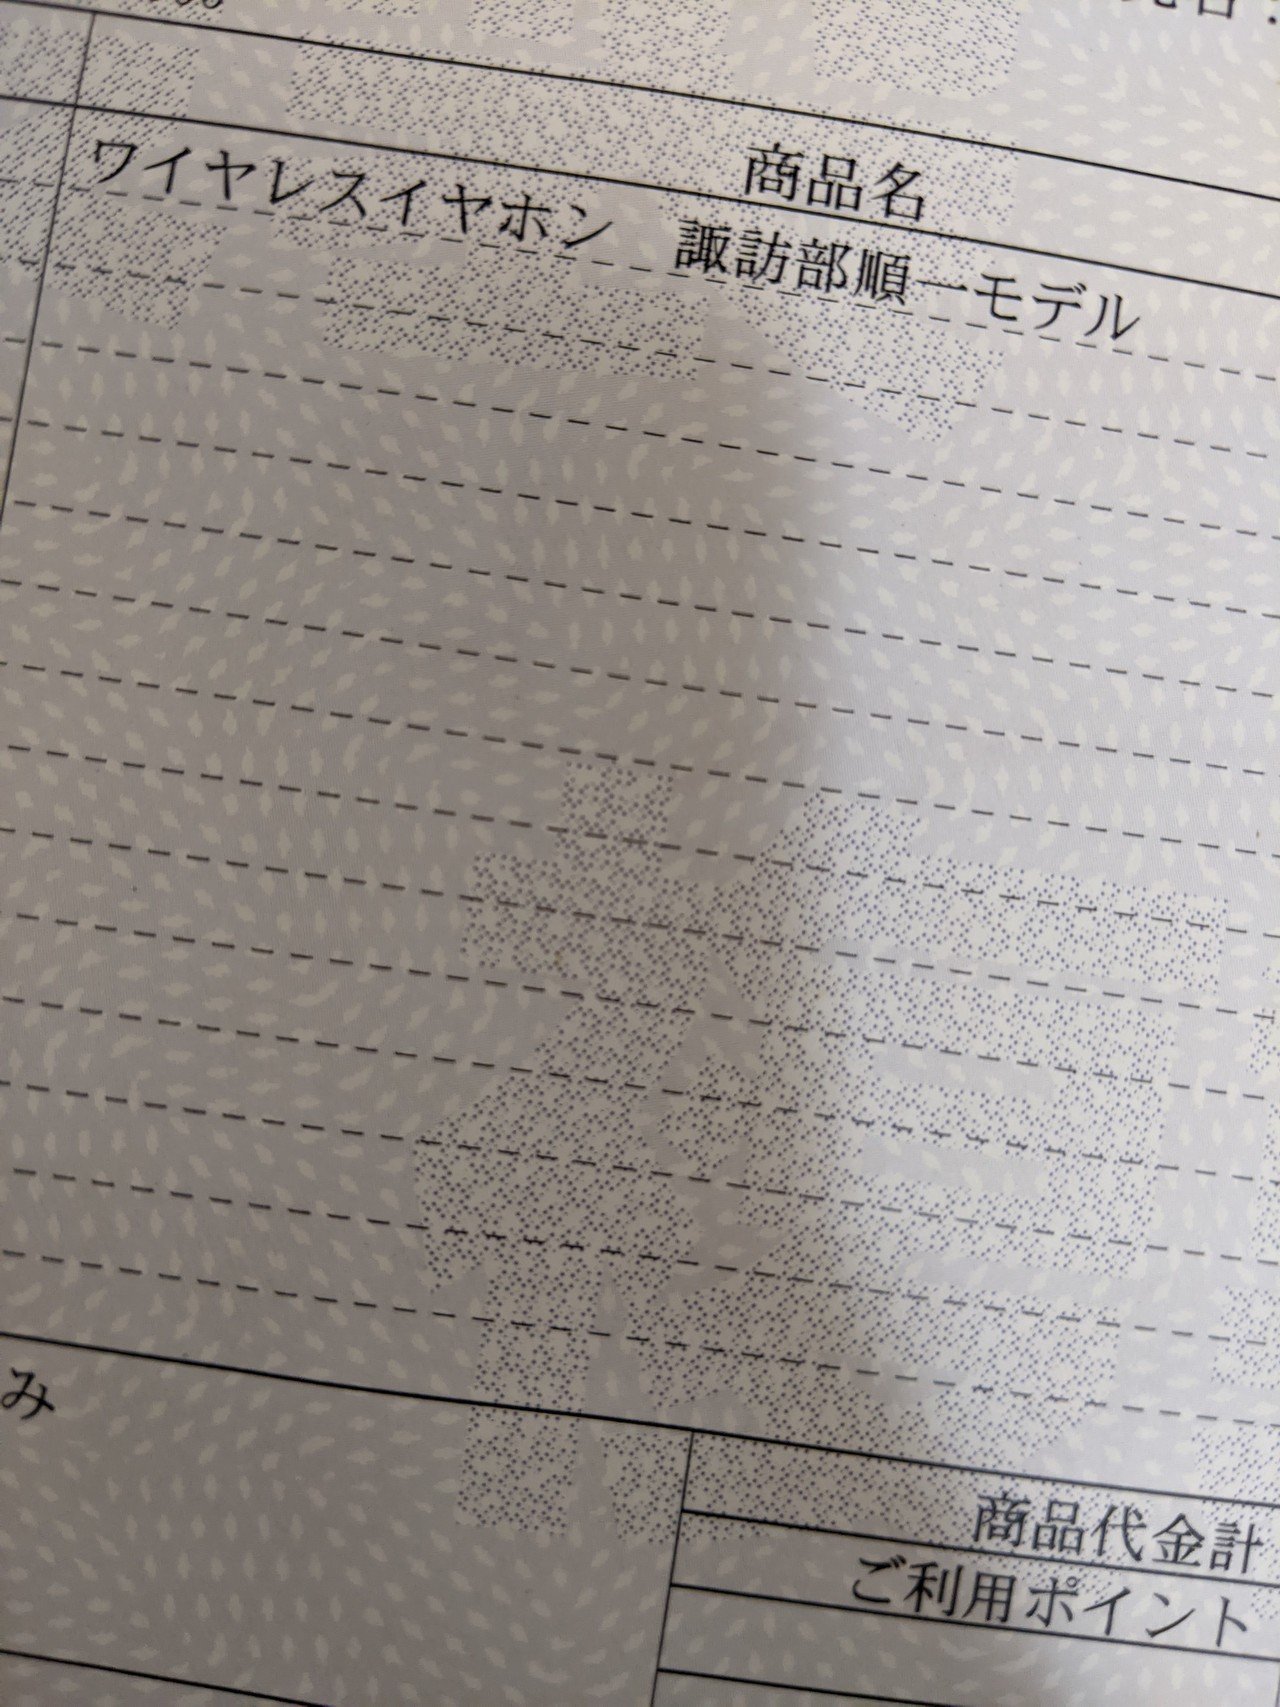 商品名
ワイヤレスイヤホン　諏訪部順一モデル
み
商品代金計
ご利用ポイント